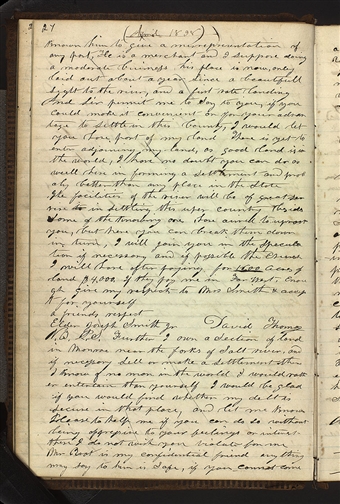 27 (April 1838)
known him to give a misrepresentation of
any sort, He is a merchant and I suppose doing
a moderate business his place is now, only
laid out about a year since a beautifull
sight to the river, and a first rate landing
And Sir permit me to say to you, if you
could make it convenient or for your advan
tage to settle in this County, I would let
you have part of my land There is yet to
enter adjoining my land, as good land is in
the world, I have no doubt you can do as
well here in forming a settlement and prob
ably better than any place in the State
The facilities of the river will be of great ser
vice in settling this upper country beside
some of the knowing ones have aimed to uproot
you, but here you can break them down
in turn, I will join you in the specula
tion if necessary and if possible the Church
I will have after paying for 1600 acres of
land $4,000. If they pay me in Far West. enou
gh Give my respect to Mrs Smith & accept
it for yourself
a friends respect
Elder Joseph Smith Jr David Thomas
N.B. P.S. Further I own a section of land
in Monroe near the forks of Salt river, and
if necessary sell or make a settlement there
I know of no man in the world I would rath
er entertain than yourself I would be glad
if you would find whether my debt is
secure in that place, and let me know
Please to help me if you can do so without
being oppressive to your feelings or interest
then I do not wish you violate for me
Mr. Root is my confidential friend anything
may say to him is safe, if you cannot come